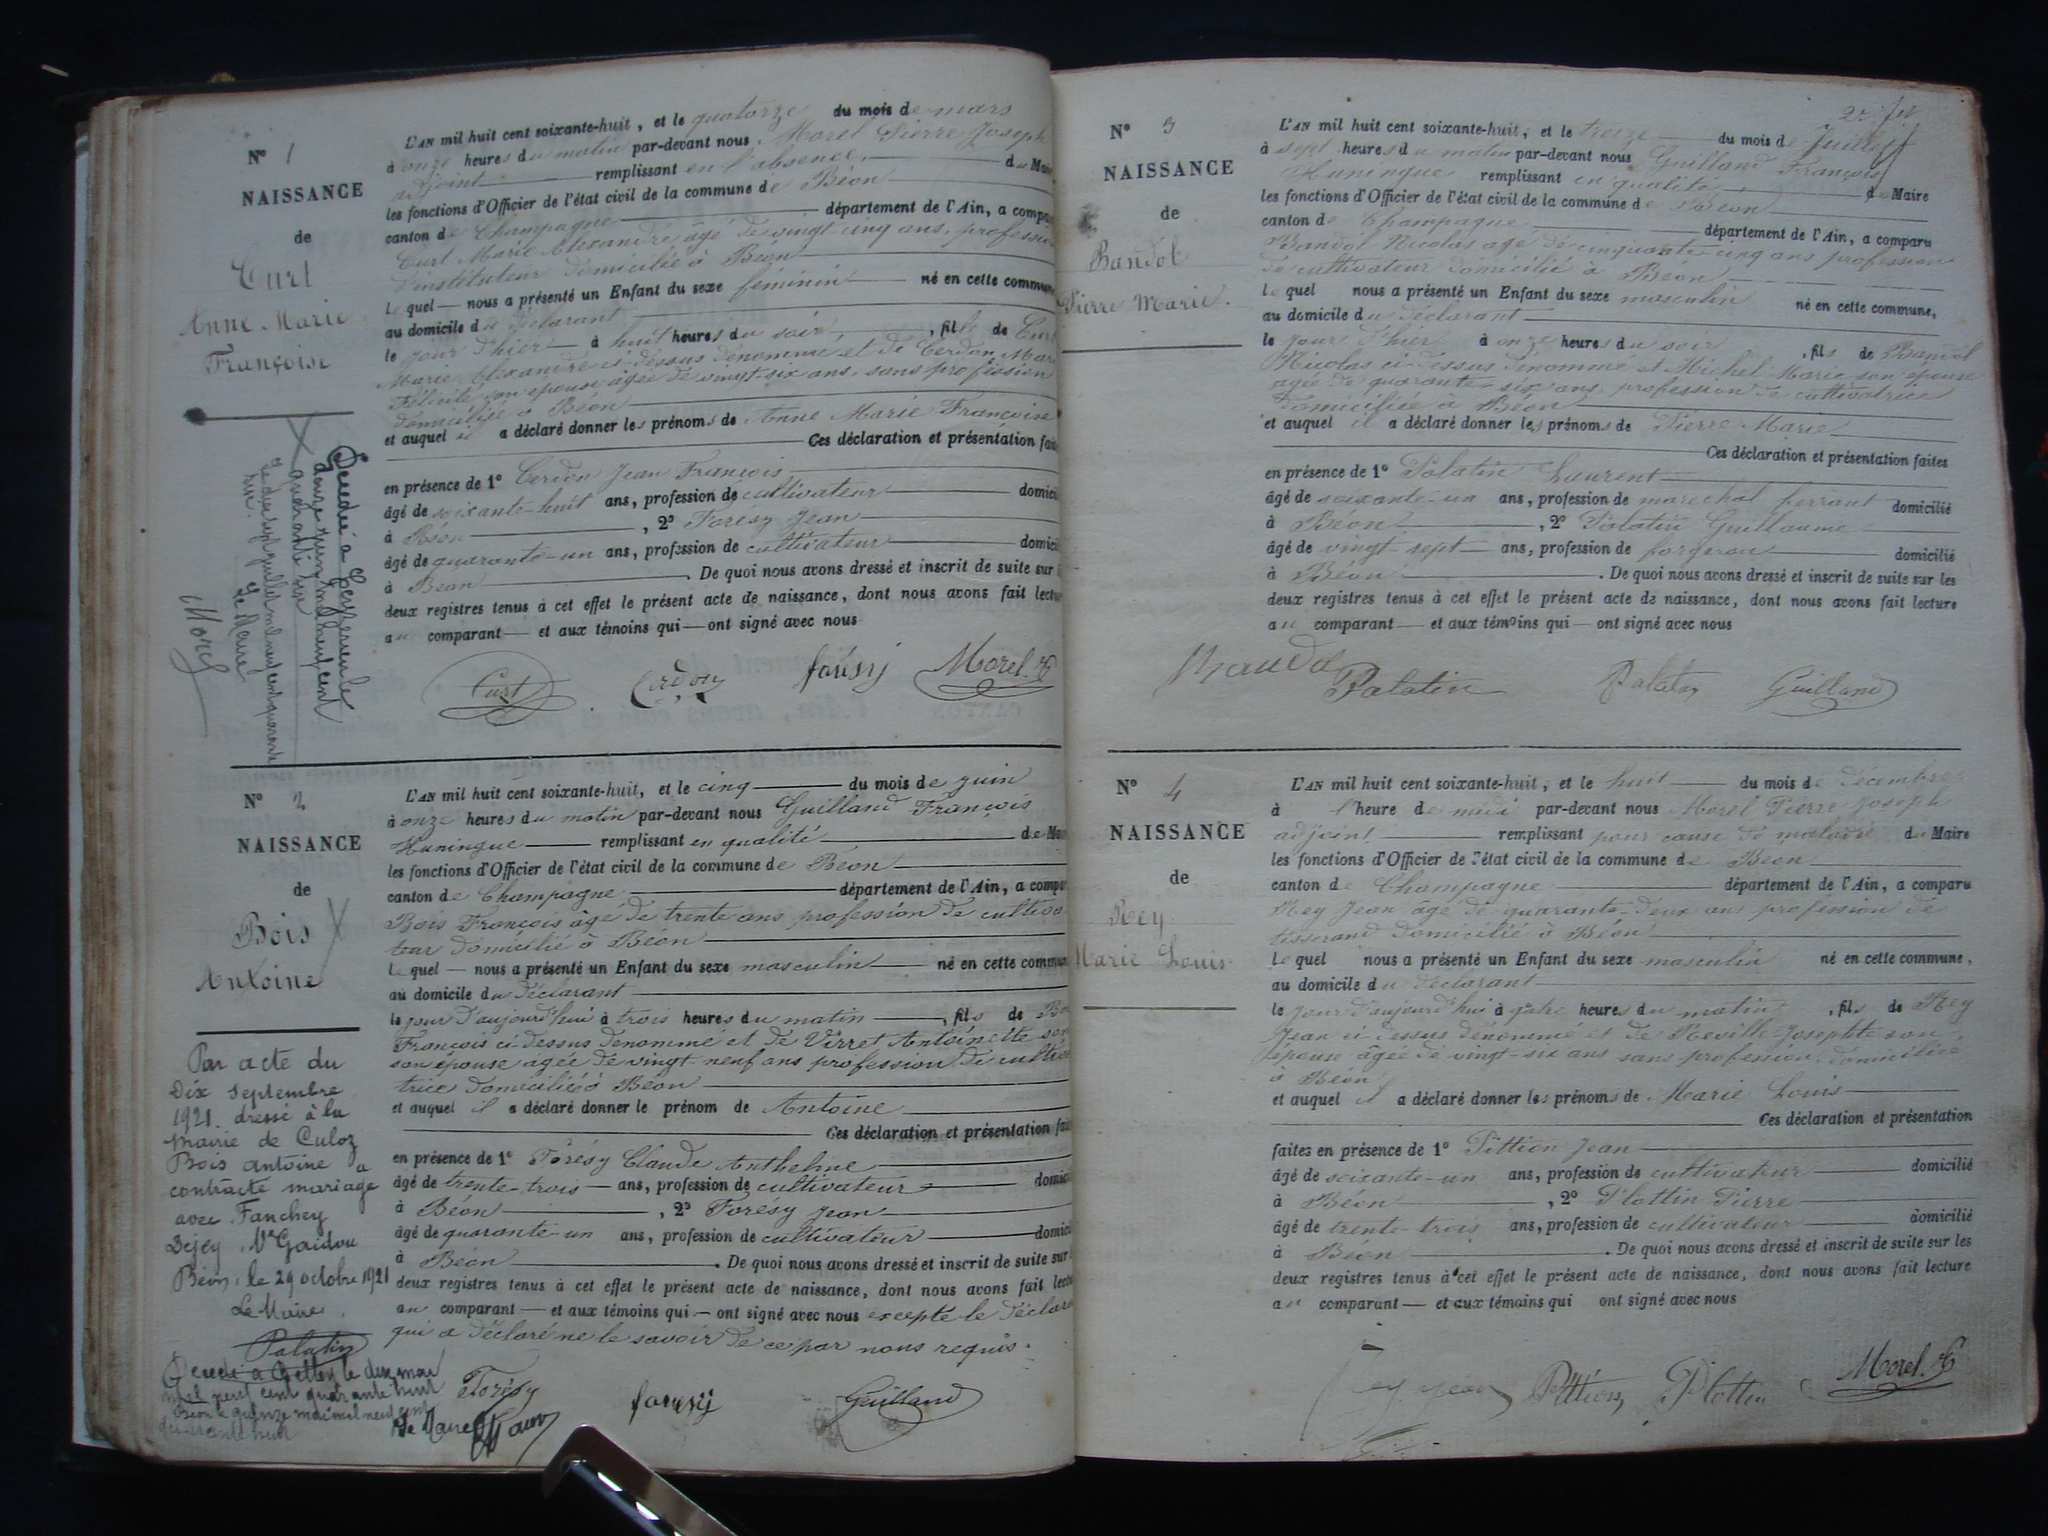 N° 1
NAISSANCE
de
Curt
Anne Marie
Françoise
L'AN mil huit cent soixante-huit, et le quatorze du mois de mars
à onze heures du matin par-devant nous Morel Pierre Joseph
adjoint remplissant en l'absence du Maire
les fonctions d'Officier de l'état civil de la commune de Béon
canton de Champagne département de l'Ain, a compa
Curt Marie Alexandre âgé de vingt cinq ans, profession
d'instituteur domicilié à Béon
Lequel nous a présenté un Enfant du sexe féminin né en cette commune
au domicile du déclarant
le jour d'hier à huit heures du soir, fille de Curt
Marie Alexandre ci-dessus dénommé et de Cerdon Marie
Félicité son épouse âgée de vingt-six ans, sans profession
domiciliée à Béon
et auquel il a déclaré donner les prénoms de Anne Marie Françoise
Ces déclaration et présentation fait
en présence de 1° Cerdon Jean François
âgé de soixante-huit ans, profession de cultivateur domici
à Béon, 2° Forésy Jean
âgé de quarante-un ans, profession de cultivateur domici
à Béon. De quoi nous avons dressé et inscrit de suite sur
deux registres tenus à cet effet le présent acte de naissance, dont nous avons fait lectu
au comparant et aux témoins qui ont signé avec nous
Curt Cerdon forésy Morel
Décédée à Ceyzerieu le
douze juin mil neuf cent
quarante
le dix sept juillet mil neuf cent quarante
Le Maire
Morel
N° 2
NAISSANCE
de
Bois
Antoine
L'AN mil huit cent soixante-huit, et le cinq du mois de juin
à onze heures du matin par-devant nous Guilland François
Huningue remplissant en qualité de Maire
les fonctions d'Officier de l'état civil de la commune de Béon
canton de Champagne département de l'Ain, a compa
Bois François âgé de trente ans profession de cultiva
teur domicilié à Béon
Lequel nous a présenté un Enfant du sexe masculin né en cette commun
au domicile du déclarant
le jour d'aujourd'hui à trois heures du matin, fils de Bo
François ci-dessus dénommé et de Virret Antoinette son
son épouse âgée de vingt-neuf ans profession de cultiva
trice domiciliée à Béon
et auquel il a déclaré donner le prénom de Antoine
Ces déclaration et présentation fait
en présence de 1° Forésy Claude Anthelme
âgé de trente-trois ans, profession de cultivateur domici
à Béon, 2° Forésy Jean
âgé de quarante-un ans, profession de cultivateur domici
à Béon. De quoi nous avons dressé et inscrit de suite sur
deux registres tenus à cet effet le présent acte de naissance, dont nous avons fait lectu
au comparant et aux témoins qui ont signé avec nous excepté le déclara
qui a déclaré ne le savoir de ce par nous requis.
Forésy forésy Guilland
Par acte du
Dix septembre
1921 dressé à la
mairie de Culoz
Bois Antoine a
contracté mariage
avec Fanchey
Vve Gaidou
Béon, le 29 octobre 1921
Le Maire
Palatin
Décédé à le dix mai
mil neuf cent quarante huit
Béon le quinze mai mil neuf cent
quarante huit
Le Maire
N° 3
NAISSANCE
de
Bandol
Pierre Marie
L'AN mil huit cent soixante-huit, et le treize du mois de Juillet
à sept heures du matin par-devant nous Guilland François
Huningue remplissant en qualité de Maire
les fonctions d'Officier de l'état civil de la commune de Béon
canton de Champagne département de l'Ain, a comparu
Bandol Nicolas âgé de cinquante-cinq ans profession
de cultivateur domicilié à Béon
Lequel nous a présenté un Enfant du sexe masculin né en cette commune,
au domicile du déclarant
le jour d'hier à onze heures du soir, fils de Bandol
Nicolas ci-dessus dénommé et Michel Marie son épouse
âgée de quarante-six ans, profession de cultivatrice
domiciliée à Béon
et auquel il a déclaré donner les prénoms de Pierre Marie
Ces déclaration et présentation faites
en présence de 1° Palatin Laurent
âgé de soixante-un ans, profession de maréchal ferrant domicilié
à Béon, 2° Palatin Guillaume
âgé de vingt-sept ans, profession de forgeron domicilié
à Béon. De quoi nous avons dressé et inscrit de suite sur les
deux registres tenus à cet effet le présent acte de naissance, dont nous avons fait lecture
au comparant et aux témoins qui ont signé avec nous
Palatin Palatin Guilland
N° 4
NAISSANCE
de
Rey
Marie Louis
L'AN mil huit cent soixante-huit, et le huit du mois de décembre
à l'heure de midi par-devant nous Morel Pierre Joseph
adjoint remplissant pour cause de maladie du Maire
les fonctions d'Officier de l'état civil de la commune de Béon
canton de Champagne département de l'Ain, a comparu
Rey Jean âgé de quarante-deux ans profession de
tisserand domicilié à Béon
Lequel nous a présenté un Enfant du sexe masculin né en cette commune,
au domicile du déclarant
le jour d'aujourd'hui à heures du matin, fils de Rey
Jean ci-dessus dénommé et de Josephte son
épouse âgée de vingt-six ans sans profession, domiciliée
à Béon
et auquel il a déclaré donner les prénoms de Marie Louis
Ces déclaration et présentation
faites en présence de 1° Pittion Jean
âgé de soixante-un ans, profession de cultivateur domicilié
à Béon, 2° Plottin Pierre
âgé de trente-trois ans, profession de cultivateur domicilié
à Béon. De quoi nous avons dressé et inscrit de suite sur les
deux registres tenus à cet effet le présent acte de naissance, dont nous avons fait lecture
au comparant et aux témoins qui ont signé avec nous
Rey Jean Pittion Plottin Morel